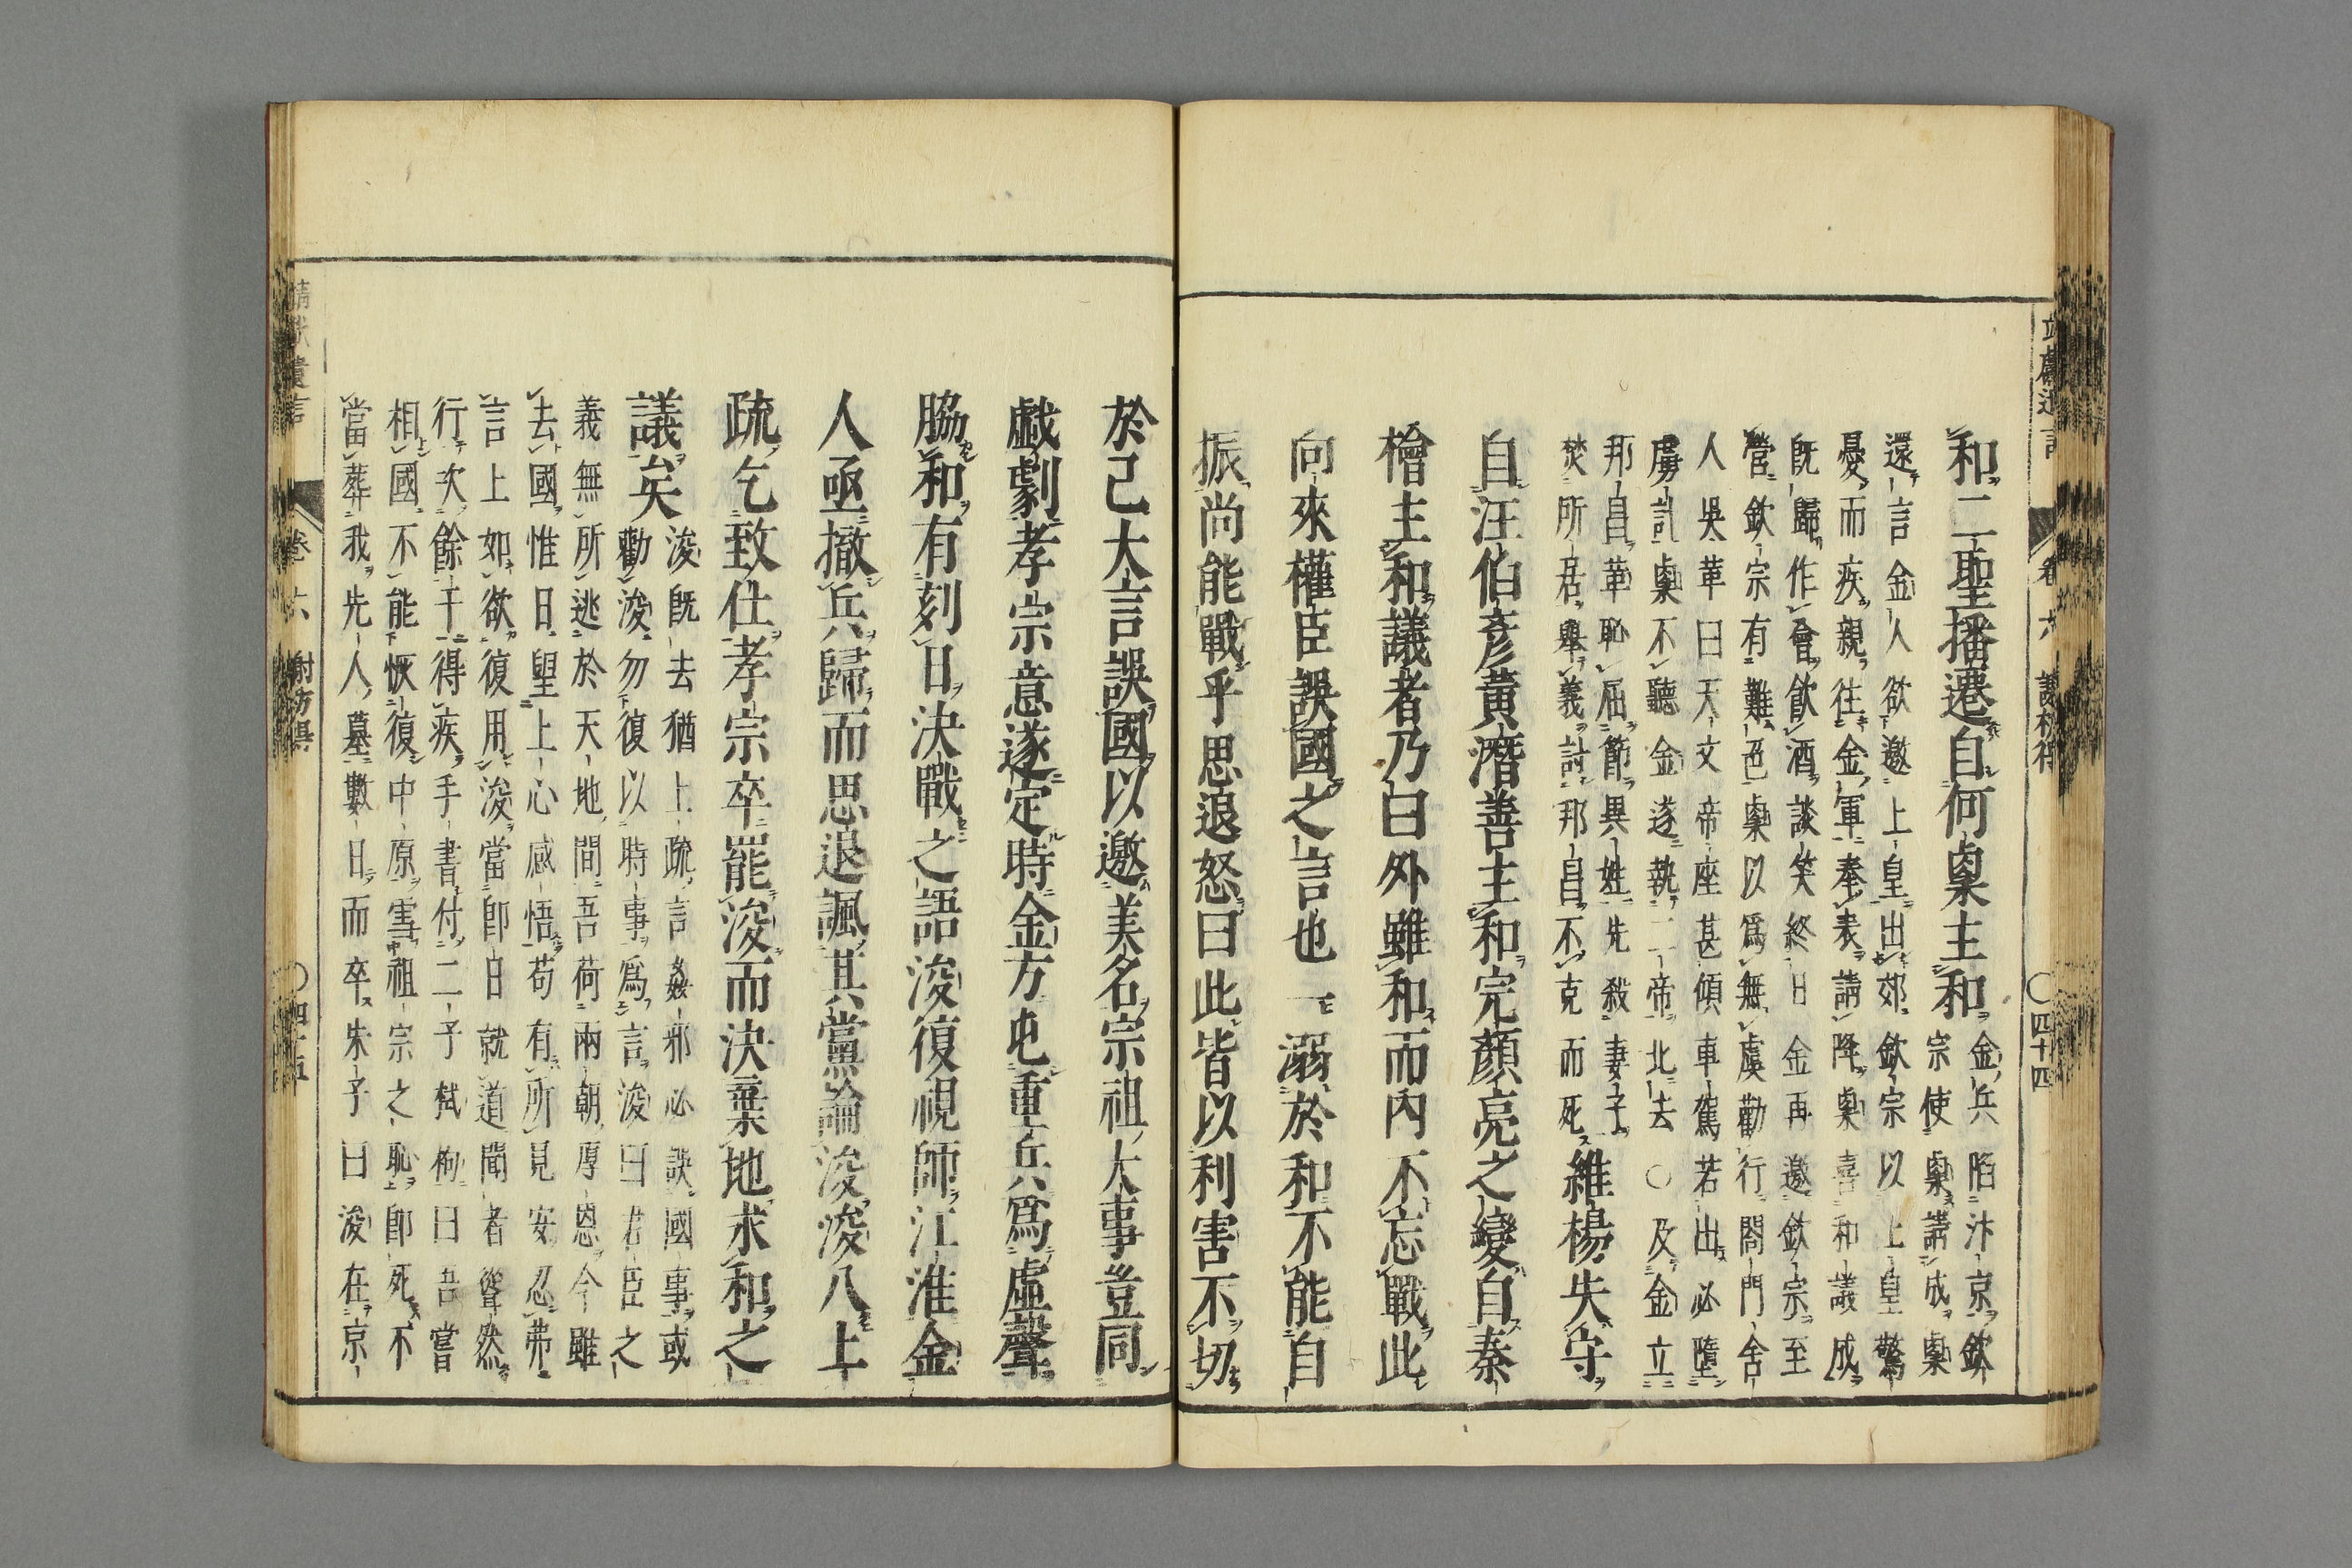 和二聖播遷自何㮚主和金兵陷汴京欽
宗使㮚請成㮚
還言金人欲邀上皇出郊欽宗以上皇驚
憂而疾親往金軍奉表請降㮚喜和議成
既歸作會飲酒談笑終日金再邀欽宗至
營欽宗有難色㮚以爲無虞勸行閤門舍
人吳革曰天文帝座甚傾車駕若出必墮
虜計㮚不聽金遂執二帝北去○及金立
邦昌革恥屈節異姓先殺妻子
焚所居舉義討邦昌不克而死維楊失守
自汪伯彦黃潛善主和完顏亮之變自秦
檜主和議者乃曰外雖和而內不忘戰此
向來權臣誤國之言也一溺於和不能自
振尚能戰乎思退怒曰此皆以利害不切
於己大言誤國以邀美名宗祖大事豈同
戲劇孝宗意遂定時金方屯重兵爲虛聲
脇和有刻日決戰之語浚復視師江淮金
人亟撤兵歸而思退諷其黨論浚浚八上
疏乞致仕孝宗卒罷浚而決棄地求和之
議矣浚既去猶上疏言姦邪必誤國事或
勸浚勿復以時事爲言浚曰君臣之
義無所逃於天地間吾荷兩朝厚恩今雖
去國惟日望上心感悟苟有所見安忍弗
言上如欲復用浚當即日就道聞者聳然
行次餘干得疾手書付二子栻枸曰吾嘗
相國不能恢復中原雪祖宗之恥即死不
當葬我先人墓數日而卒朱子曰浚在京
卷六 謝枋得 ○四十四
靖獻遺言 卷六 謝枋得 ○四十五